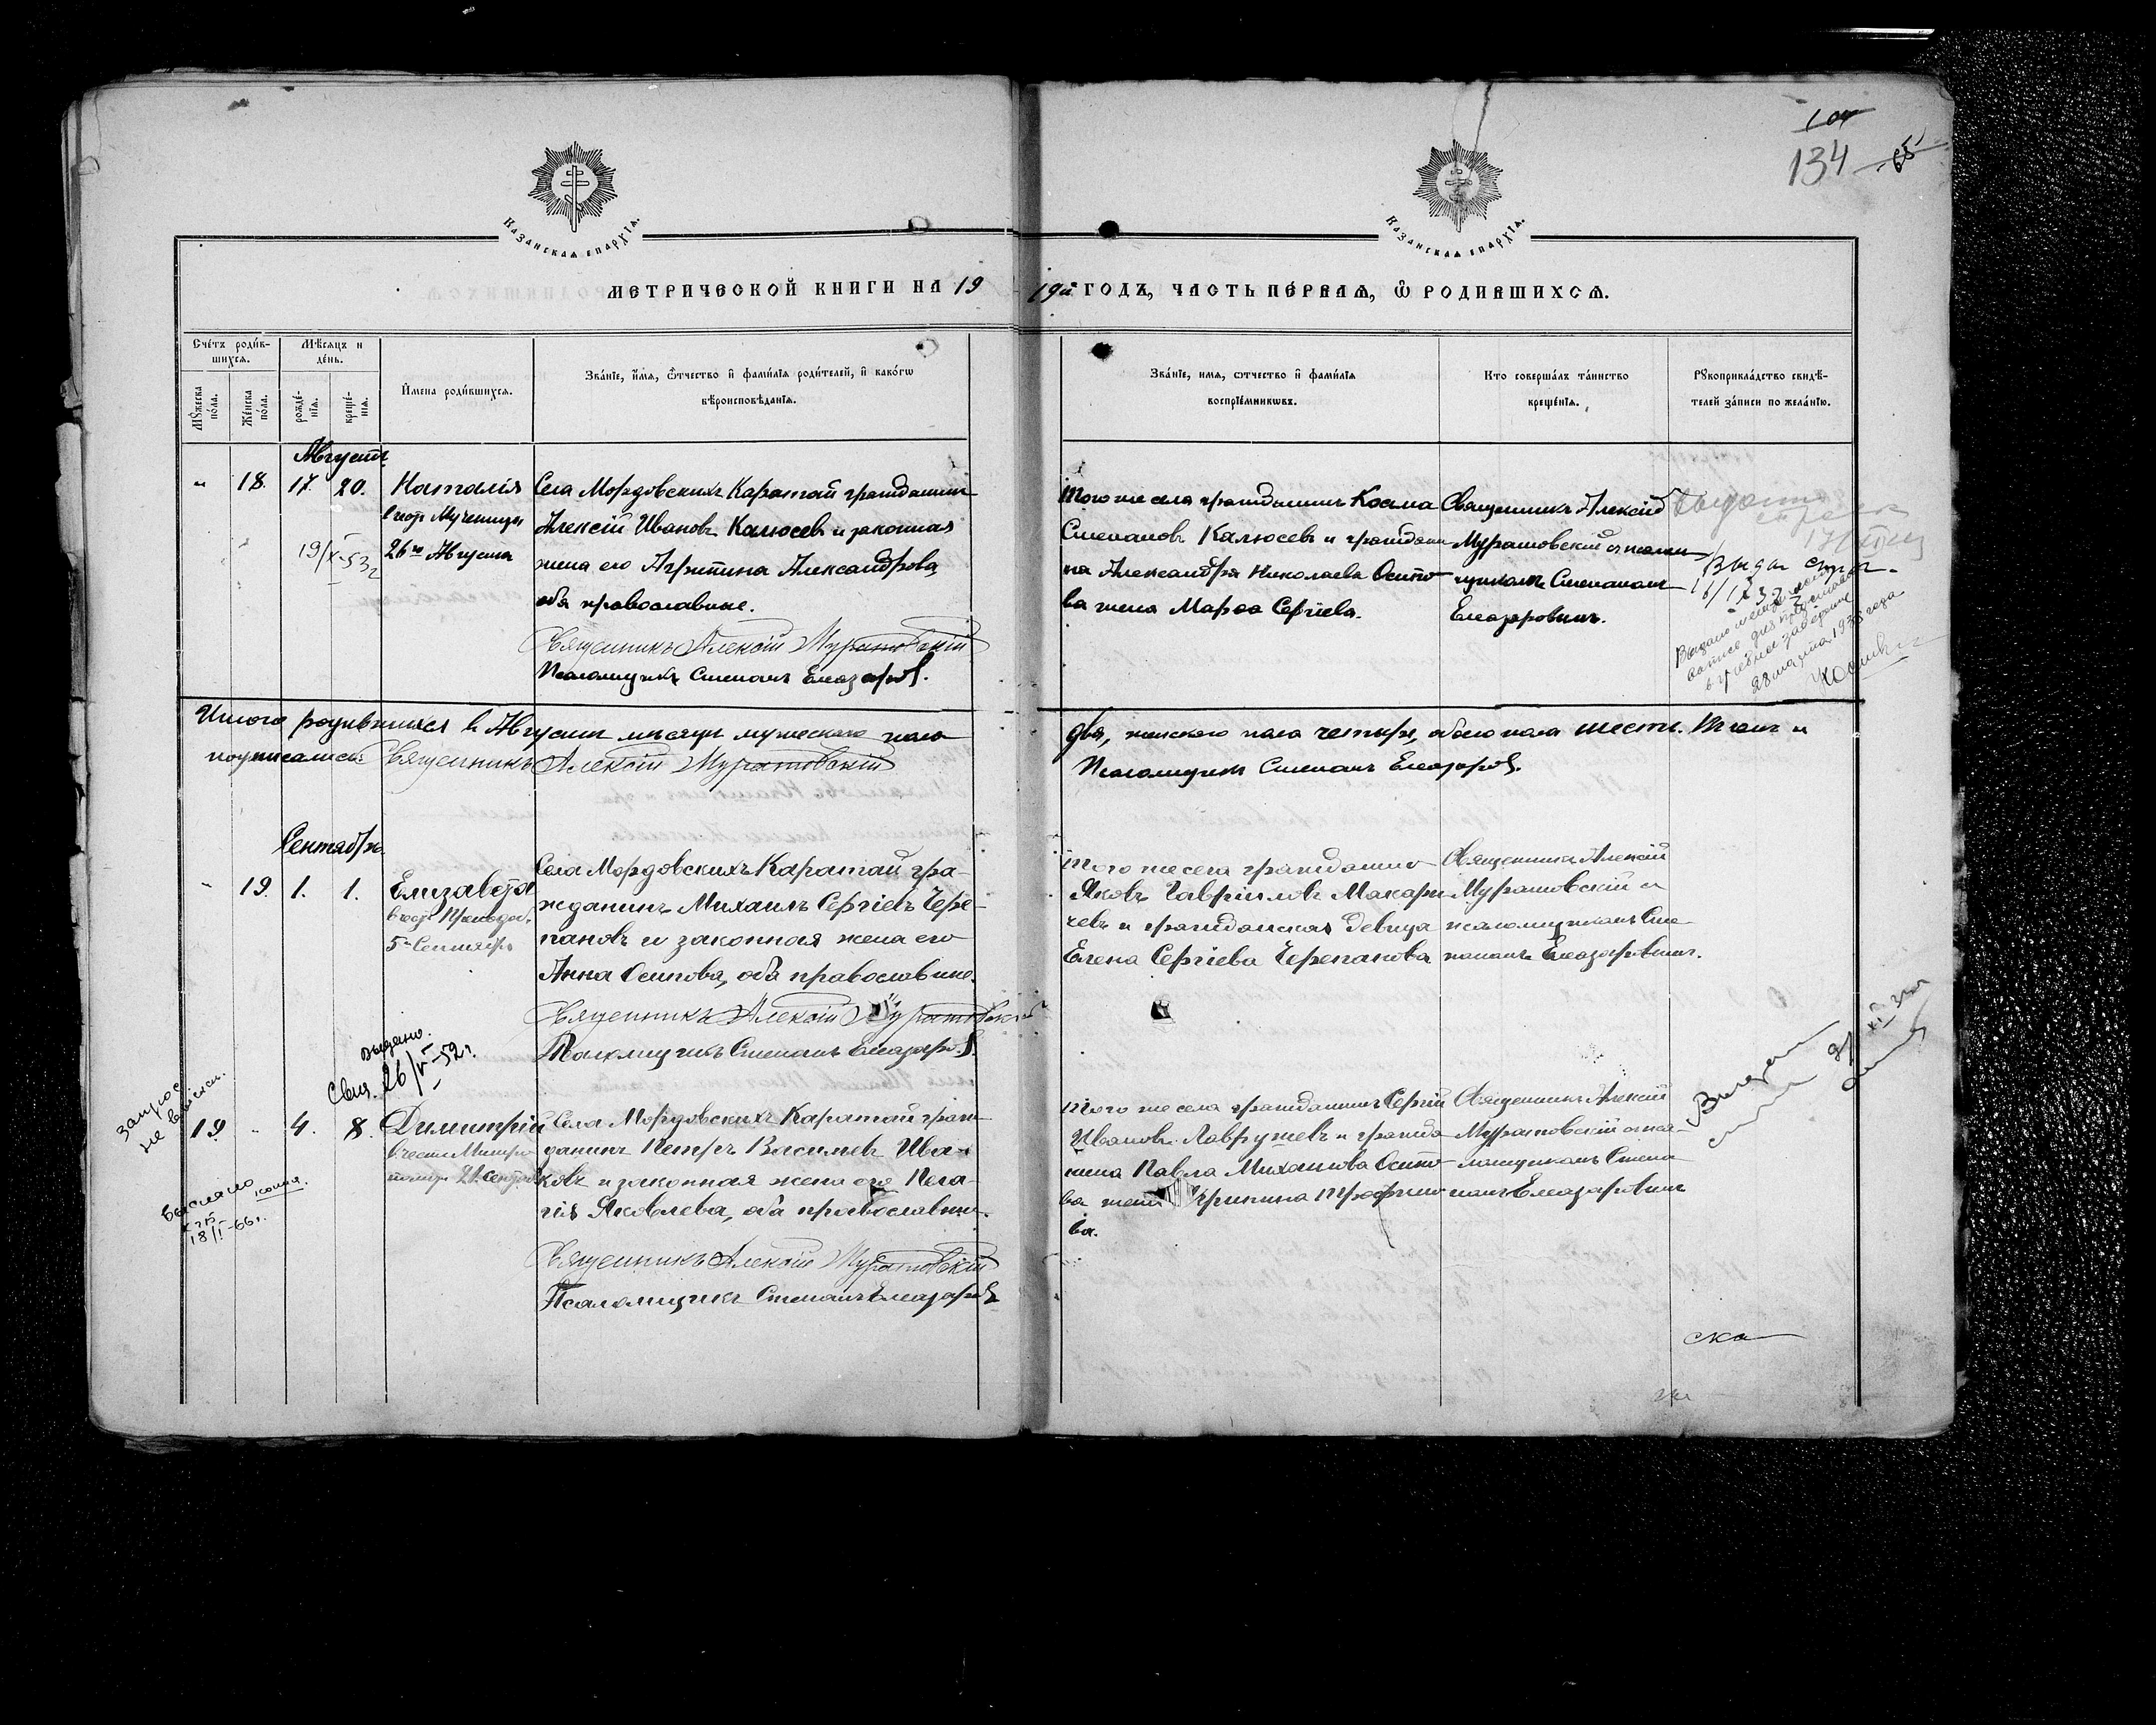 104
134
65
КАЗАНСКАѦ ЕПАРХІѦ.
КАЗАНСКАѦ ЕПАРХІѦ.
МЕТРИЧЕСКОЙ КНИГИ НА 19
19й ГОДЪ, ЧАСТЬ ПЕ́РВАѦ, Ѽ РОДИВШИХСѦ.
Сче́тъ роди́в-
шихсѧ.
Мѣ́сѧцъ и
де́нь.
Мꙋ́жеска
по́ла.
Же́нска
по́ла.
рожде́-
нїѧ.
креще́-
нїѧ.
И҆мена роди́вшихсѧ.
Зва́нїе, и҆́мѧ, ѻ҆́тчество и҆ фами́лїѧ роди́телей, и҆ како́гѡ
вѣроисповѣ́данїѧ.
Зва́нїе, имѧ, ѻтчество и҆ фами́лїѧ
воспрїе́мникѡвъ.
Кто соверша́лъ та́инство
креще́нїѧ.
Рꙋкоприкла́дство свидѣ́-
телей за́писи по жела́нїю.
Августъ
" 18. 17. 20. Наталія
в честь Мученицы
26го Августа
19/X-53г
Села Мордовскихъ Каратай гражданинъ
Алексій Ивановъ Калюсевъ и законная
жена его Агрипина Александрова,
оба православные.
Священникъ Алексій Муратовскій
Псаломщикъ Степанъ Елеазаровъ.
Того же села гражданинъ Косма
Степановъ Калюсевъ и граждани
на Александра Николаева Осипо
ва жена Марѳа Сергіева.
Священникъ Алексій
Муратовскій съ псалом
щикомъ Степаномъ
Елеазаровымъ.
Выдано
Выдан
16/IX 32 г
28 марта 1935 года
Итого родившихся въ Августѣ мѣсяцѣ мужескаго пола
два, женского пола четыре, обоего пола шесть. В томъ и
подписались: Священникъ Алексій Муратовскій
Псаломщикъ Степанъ Елеазаровъ.
Сентября
" 19. 1. 1. Елизавета
в честь Праведн.
5го Сентября
Села Мордовскихъ Каратай гра-
жданинъ Михаилъ Сергіевъ Чере-
пановъ и законная жена его
Анна Осипова, оба православные.
Священникъ Алексій Муратовскій
Псаломщикъ Степанъ Елеазаровъ.
Того же села гражданинъ
Яковъ Гавріиловъ Макары
чевъ и гражданская девица
Елена Сергіева Черепанова
Священникъ Алексій
Муратовскій и
псаломщикомъ Сте
паномъ Елеазаровымъ.
выдано
Свид. 26/V-52г.
запрос
не
19 " 4. 8. Димитрій
в честь Митро
полит. 21 Сентяб
выслано
копия.
18/I-66г.
Села Мордовскихъ Каратай граж
данинъ Петръ Васильевъ Ива-
ковъ и законная жена его Пела-
гія Яковлева, оба православные.
Священникъ Алексій Муратовскій
Псаломщикъ Степанъ Елеазаровъ
Того же села гражданинъ Сергій
Ивановъ Лаврушевъ и гражда
нина Павла Михаилова Осипо
ва жена Ирина Трофимо
ва.
Священникъ Алексій
Муратовскій с пса-
ломщикомъ Степа
номъ Елеазаровымъ
ска